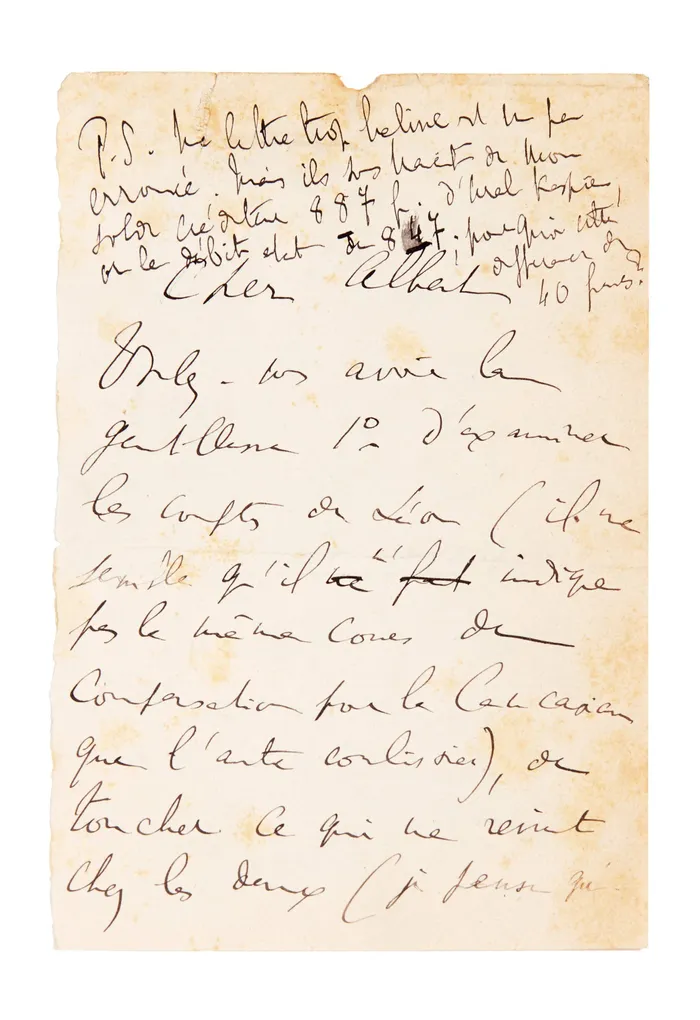 P.S. Ma lettre trop hative est un peu
erronée. Mais ils vous disent de mon
solde créditeur 887 f. d'Ural Kaspien,
or le débit etait de 847. pourquoi cette
différence de
40 francs?
Cher Albert
Voulez-vous avoir la
gentillesse 1º d'examiner
les compts de Léon (il me
semble qu'il n' indique
pas le même cours de
Compensation pour la Caucasian
que l'autre coulissier), de
toucher ce qui me revient
chez les deux (je pense qu'